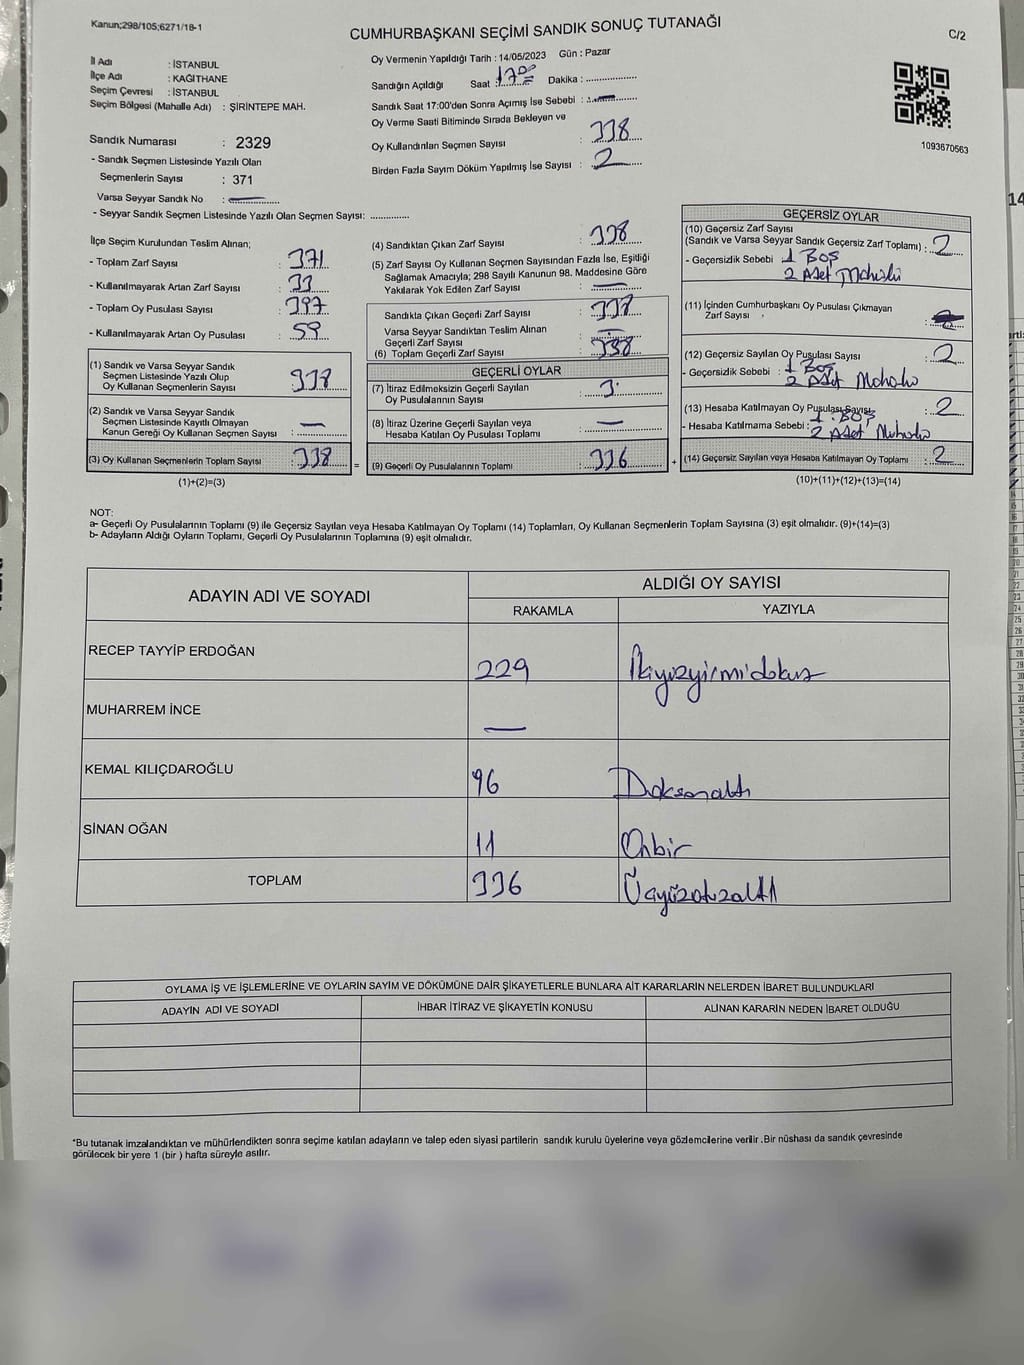 Kanun;298/105;6271/18-1
CUMHURBAŞKANI SEÇİMİ SANDIK SONUÇ TUTANAĞI
C/2
İl Adı : İSTANBUL
İlçe Adı : KAĞITHANE
Seçim Çevresi : İSTANBUL
Seçim Bölgesi (Mahalle Adı) : ŞİRİNTEPE MAH.
Oy Vermenin Yapıldığı Tarih : 14/05/2023 Gün : Pazar
Sandığın Açıldığı Saat : 17:00 Dakika : ................
Sandık Saat 17:00'den Sonra Açımış İse Sebebi :
Oy Verme Saati Bitiminde Sırada Bekleyen ve
Oy Kullandırılan Seçmen Sayısı : 338
Birden Fazla Sayım Döküm Yapılmış İse Sayısı : 2
1093670563
Sandık Numarası : 2329
- Sandık Seçmen Listesinde Yazılı Olan
Seçmenlerin Sayısı : 371
Varsa Seyyar Sandık No : —
- Seyyar Sandık Seçmen Listesinde Yazılı Olan Seçmen Sayısı: ..............
İlçe Seçim Kurulundan Teslim Alınan;
- Toplam Zarf Sayısı : 371
- Kullanılmayarak Artan Zarf Sayısı : 33
- Toplam Oy Pusulası Sayısı : 397
- Kullanılmayarak Artan Oy Pusulası : 59
(1) Sandık ve Varsa Seyyar Sandık
Seçmen Listesinde Yazılı Olup
Oy Kullanan Seçmenlerin Sayısı : 338
(2) Sandık ve Varsa Seyyar Sandık
Seçmen Listesinde Kayıtlı Olmayan
Kanun Gereği Oy Kullanan Seçmen Sayısı : —
(3) Oy Kullanan Seçmenlerin Toplam Sayısı : 338
(1)+(2)=(3)
(4) Sandıktan Çıkan Zarf Sayısı : 338
(5) Zarf Sayısı Oy Kullanan Seçmen Sayısından Fazla İse, Eşitliği
Sağlamak Amacıyla; 298 Sayılı Kanunun 98. Maddesine Göre
Yakılarak Yok Edilen Zarf Sayısı : —
Sandıkta Çıkan Geçerli Zarf Sayısı : 338
Varsa Seyyar Sandıktan Teslim Alınan
Geçerli Zarf Sayısı : —
(6) Toplam Geçerli Zarf Sayısı : 338
GEÇERLİ OYLAR
(7) İtiraz Edilmeksizin Geçerli Sayılan
Oy Pusulalarının Sayısı :
(8) İtiraz Üzerine Geçerli Sayılan veya
Hesaba Katılan Oy Pusulası Toplamı : —
= (9) Geçerli Oy Pusulalarının Toplamı : 336
GEÇERSİZ OYLAR
(10) Geçersiz Zarf Sayısı
(Sandık ve Varsa Seyyar Sandık Geçersiz Zarf Toplamı) : 2
- Geçersizlik Sebebi : 1 Boş
(11) İçinden Cumhurbaşkanı Oy Pusulası Çıkmayan
Zarf Sayısı :
(12) Geçersiz Sayılan Oy Pusulası Sayısı : 2
- Geçersizlik Sebebi : 1 Boş
(13) Hesaba Katılmayan Oy Pusulası Sayısı : 2
- Hesaba Katılmama Sebebi : 1 Boş
+ (14) Geçersiz Sayılan veya Hesaba Katılmayan Oy Toplamı : 2
(10)+(11)+(12)+(13)=(14)
NOT:
a- Geçerli Oy Pusulalarının Toplamı (9) ile Geçersiz Sayılan veya Hesaba Katılmayan Oy Toplamı (14) Toplamları, Oy Kullanan Seçmenlerin Toplam Sayısına (3) eşit olmalıdır. (9)+(14)=(3)
b- Adayların Aldığı Oyların Toplamı, Geçerli Oy Pusulalarının Toplamına (9) eşit olmalıdır.
ADAYIN ADI VE SOYADI
ALDIĞI OY SAYISI
RAKAMLA YAZIYLA
RECEP TAYYİP ERDOĞAN 229 İkiyüzyirmidokuz
MUHARREM İNCE —
KEMAL KILIÇDAROĞLU 96 Doksanaltı
SİNAN OĞAN 11 Onbir
TOPLAM 336 Üçyüzotuzaltı
OYLAMA İŞ VE İŞLEMLERİNE VE OYLARIN SAYIM VE DÖKÜMÜNE DAİR ŞİKAYETLERLE BUNLARA AİT KARARLARIN NELERDEN İBARET BULUNDUKLARI
ADAYIN ADI VE SOYADI İHBAR İTİRAZ VE ŞİKAYETİN KONUSU ALINAN KARARIN NEDEN İBARET OLDUĞU
*Bu tutanak imzalandıktan ve mühürlendikten sonra seçime katılan adayların ve talep eden siyasi partilerin sandık kurulu üyelerine veya gözlemcilerine verilir .Bir nüshası da sandık çevresinde
görülecek bir yere 1 (bir ) hafta süreyle asılır.